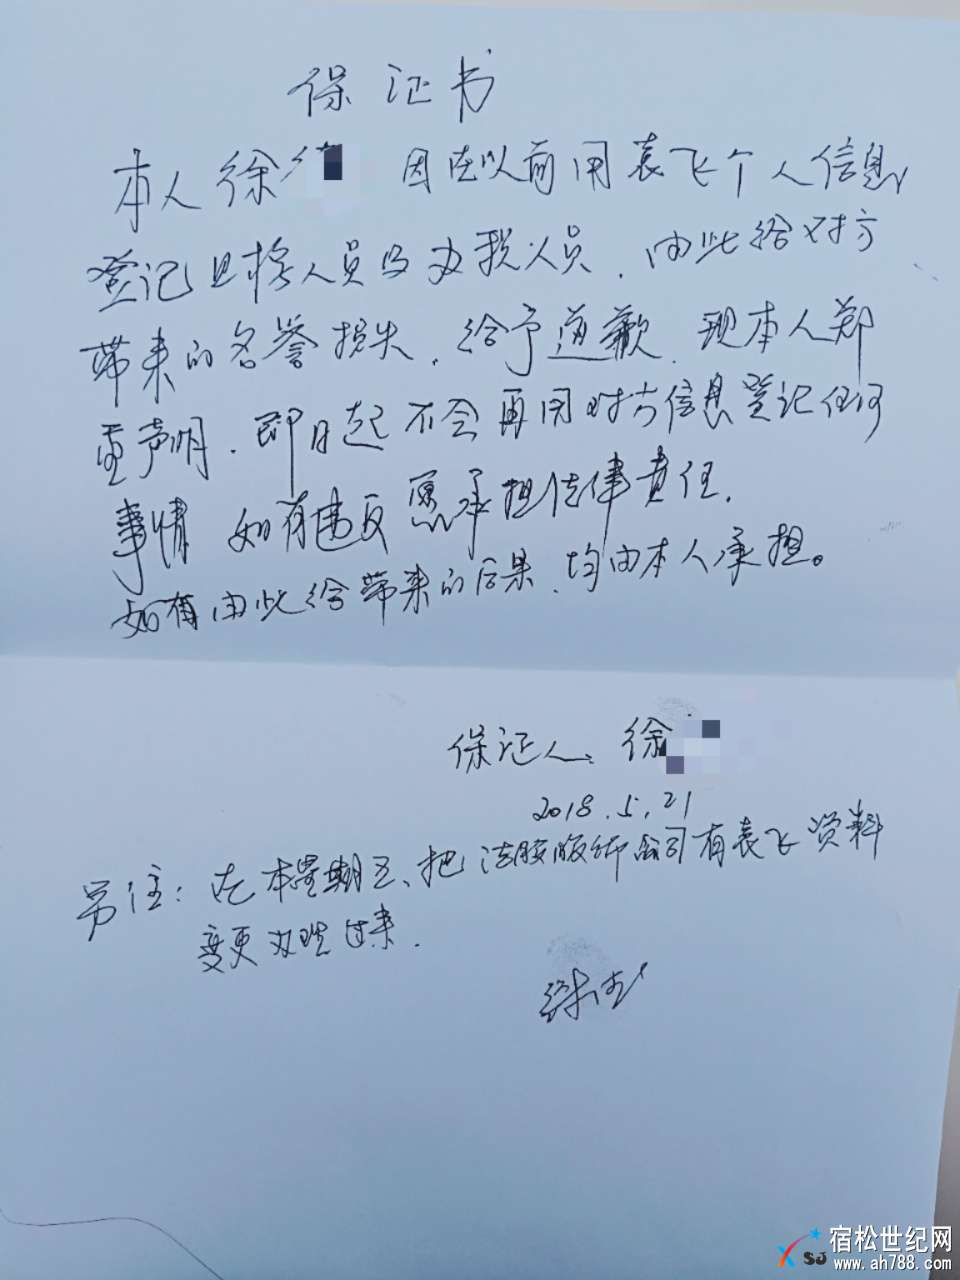 保证书
本人徐 因在以前用袁飞个人信息
登记且将人员为办税人员.由此给对方
带来的名誉损失.给予道歉.现本人郑
重声明.即日起不会再用对方信息登记任何
事情 如有违反愿承担法律责任.
如有由此给带来的后果.均由本人承担。
保证人:徐
2018.5.21
另注:在本星期五、把 服饰公司有袁飞资料
变更办理过来.
宿松世纪网
SJ
www.ah788.com